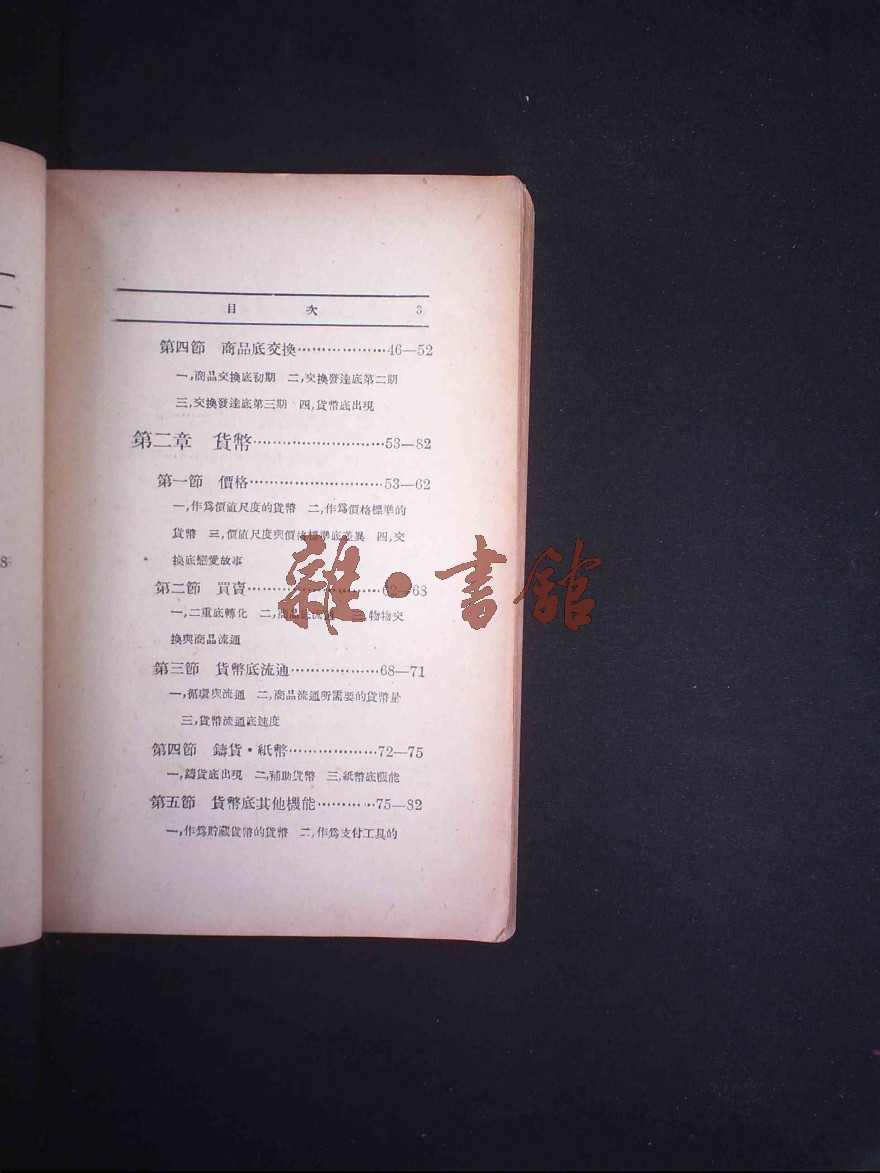 目 次 3
第四節 商品底交換··················46—52
一,商品交換底初期 二,交換發達底第二期
三,交換發達底第三期 四,貨幣底出現
第二章 貨幣··························53—82
第一節 價格··························53—62
一,作爲價值尺度的貨幣 二,作爲價格標準的
貨幣 三,價值尺度與價格標準底差異 四,交
換底戀愛故事
第二節 買賣··························62—68
一,二重底轉化 二,商品底流通 三,物物交
換與商品流通
第三節 貨幣底流通··················68—71
一,循環與流通 二,商品流通所需要的貨幣量
三,貨幣流通底速度
第四節 鑄貨·紙幣··················72—75
一,鑄貨底出現 二,補助貨幣 三,紙幣底機能
第五節 貨幣底其他機能············75—82
一,作爲貯藏貨幣的貨幣 二,作爲支付工具的
8
雜·書館